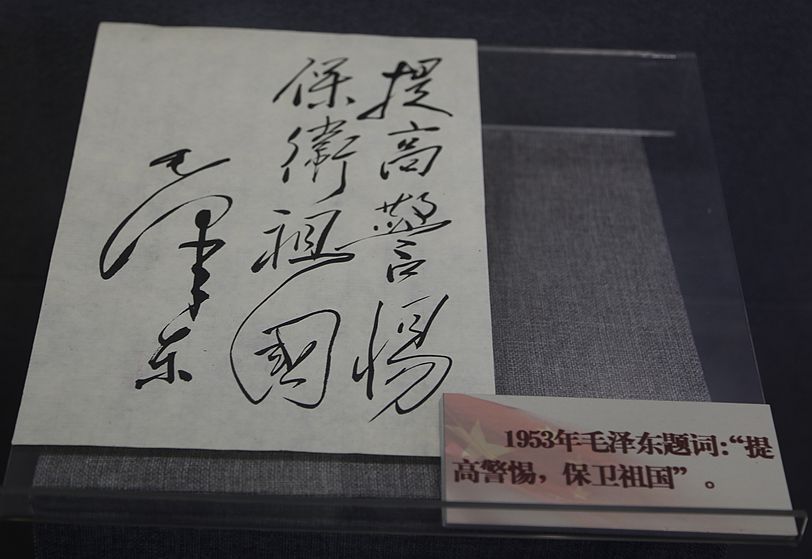 提高警惕
保衛祖國
毛澤东
1953年毛泽东题词：“提
高警惕，保卫祖国”。